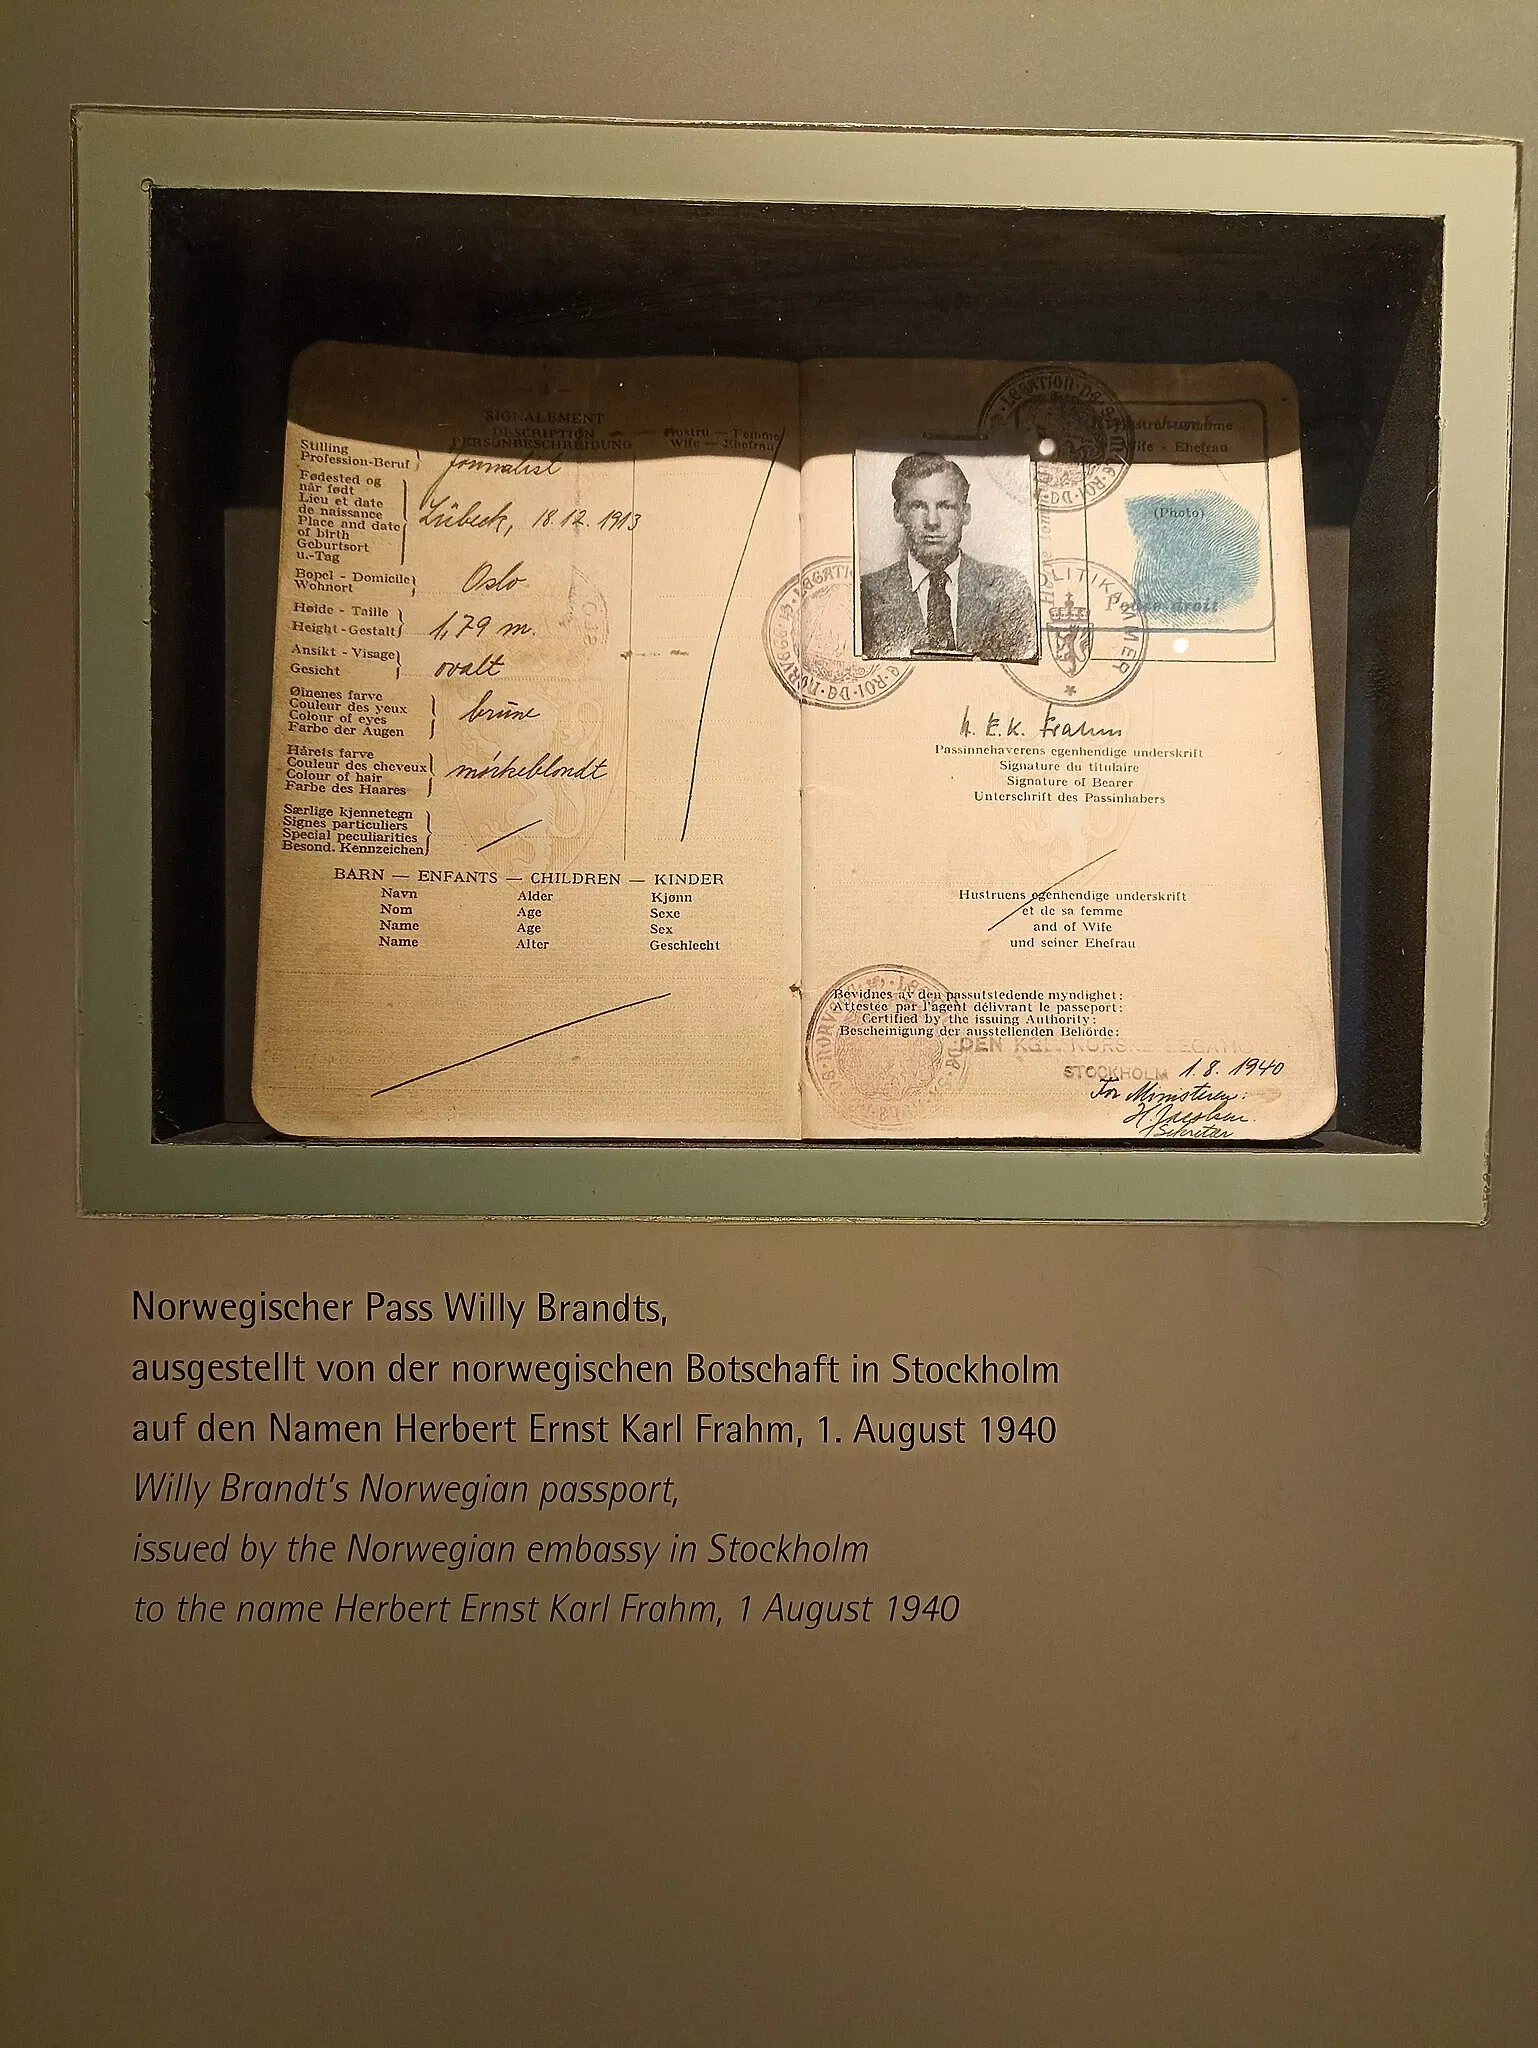 SIGNALEMENT
DESCRIPTION
PERSONBESCHREIBUNG
Hustru — Femme
Wife — Ehefrau
Stilling
Profession-Beruf
Journalist
Fødested og
når født
Lieu et date
de naissance
Place and date
of birth
Geburtsort
u.-Tag
Lübeck, 18.12.1913
Bopel - Domicile
Wohnort
Oslo
Høide - Taille
Height - Gestalt
1,79 m.
Ansikt - Visage
Gesicht
ovalt
Øinenes farve
Couleur des yeux
Colour of eyes
Farbe der Augen
brune
Hårets farve
Couleur des cheveux
Colour of hair
Farbe des Haares
mørkeblondt
Særlige kjennetegn
Signes particuliers
Special peculiarities
Besond. Kennzeichen
BARN — ENFANTS — CHILDREN — KINDER
Navn Alder Kjønn
Nom Age Sexe
Name Age Sex
Name Alter Geschlecht
Wife - Ehefrau
(Photo)
Pouce droit
H. E. K. Frahm
Passinnehaverens egenhendige underskrift
Signature du titulaire
Signature of Bearer
Unterschrift des Passinhabers
Hustruens egenhendige underskrift
et de sa femme
and of Wife
und seiner Ehefrau
Bevidnes av den passutstedende myndighet:
Attestée par l'agent délivrant le passeport:
Certified by the issuing Authority:
Bescheinigung der ausstellenden Behörde:
DEN KGL. NORSKE LEGATION
STOCKHOLM 1.8.1940
For Ministeren:
H. Jacobsen
Sekretær
Norwegischer Pass Willy Brandts,
ausgestellt von der norwegischen Botschaft in Stockholm
auf den Namen Herbert Ernst Karl Frahm, 1. August 1940
Willy Brandt's Norwegian passport,
issued by the Norwegian embassy in Stockholm
to the name Herbert Ernst Karl Frahm, 1 August 1940